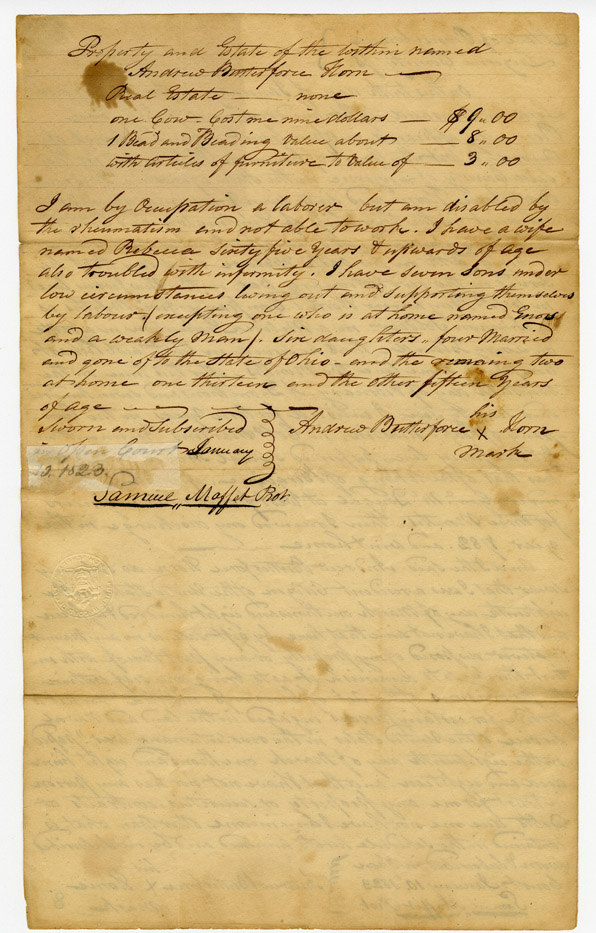 Property and Estate of the within named
Andrew Butterforce Horn —
Real Estate — none
one Cow - Cost me nine dollars — $9,,00
1 Bead and Beading value about — 8,,00
with articles of furniture to value of — 3,,00
I am by Occupation a laborer but am disabled by
the rheumatism and not able to work. I have a wife
named Rebecca sixty five years & upwards of age
also troubled with infirmity. I have seven sons under
low circumstances living out and supporting themselves
by labour (excepting one who is at home named Enos
and a weakly man). Six daughters,, four Married
and gone of to the State of Ohio - and the remaing two
at home one thirteen and the other fifteen Years
of age
Sworn and Subscribed
in open Court January
1823.
his
Andrew Butterforce x Horn
mark
Samuel Moffet Prot.